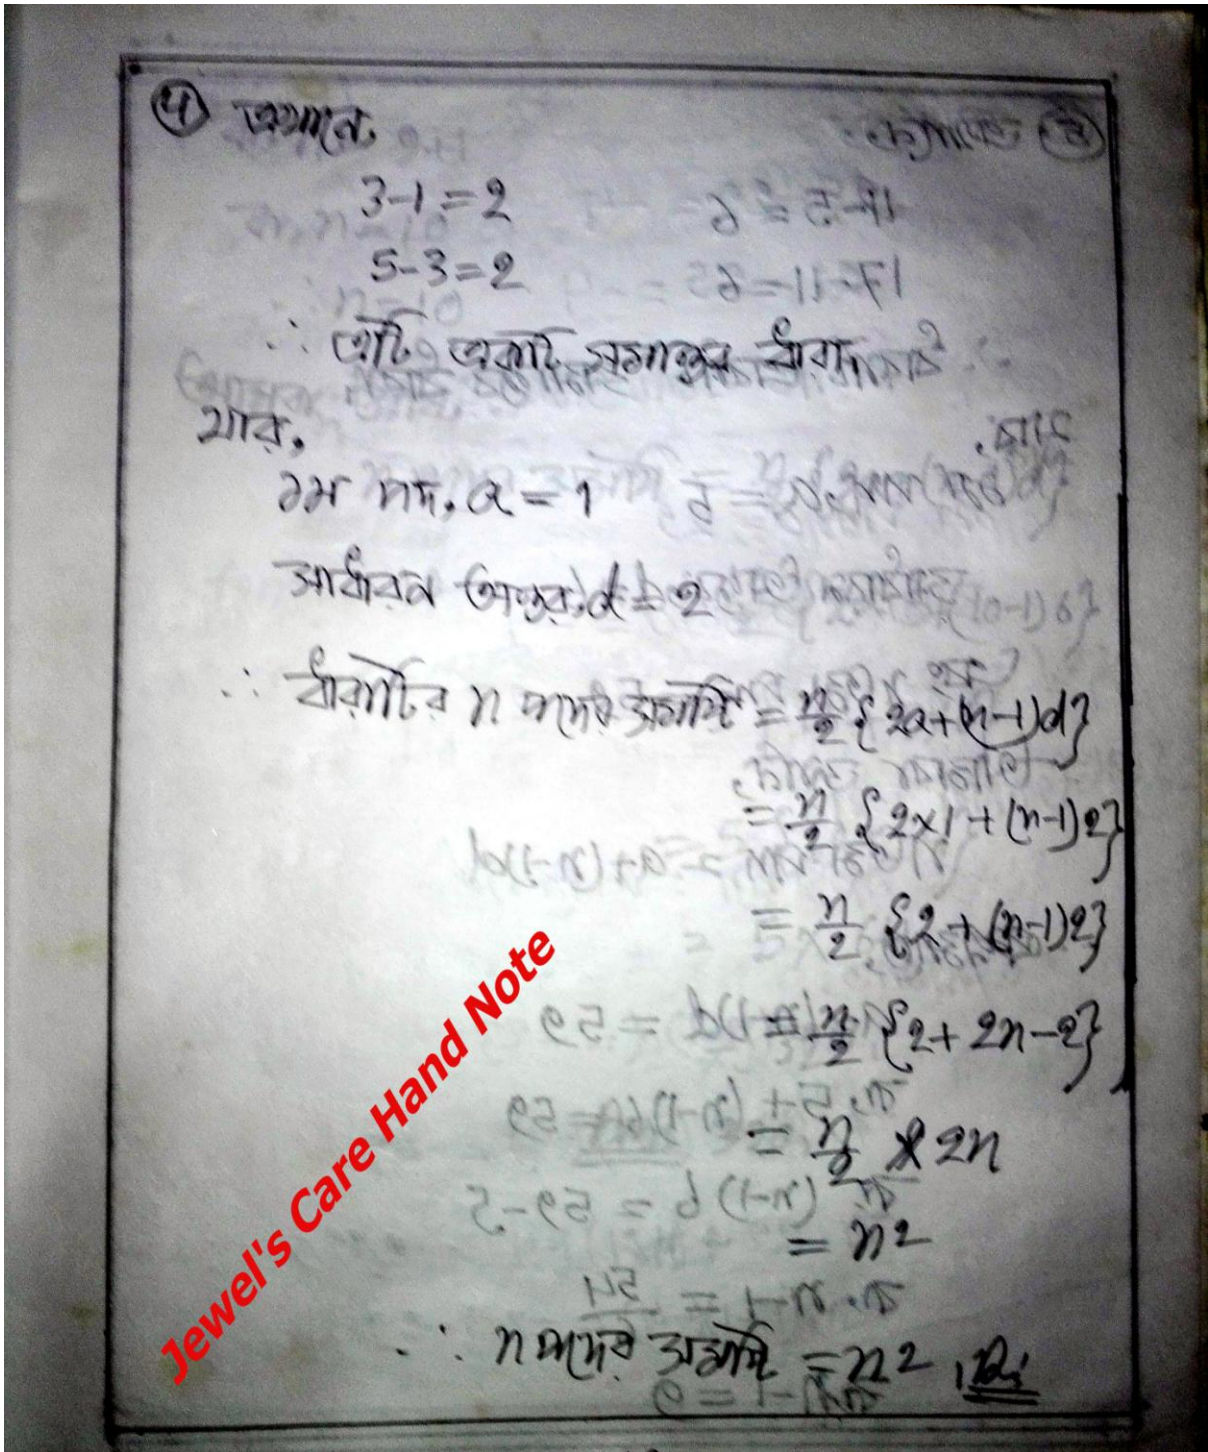 ৭ এখানে,
3-1=2
5-3=2
∴ এটি একটি সমান্তর ধারা
যার,
১ম পদ, a=1
সাধারন অন্তর, d=2
∴ ধারাটির n পদের সমষ্টি = n/2 {2a+(n-1)d}
= n/2 {2×1+(n-1)2}
= n/2 {2+(n-1)2}
= n/2 {2+2n-2}
= n/2 × 2n
= n2
∴ n পদের সমষ্টি = n2
Jewel's Care Hand Note